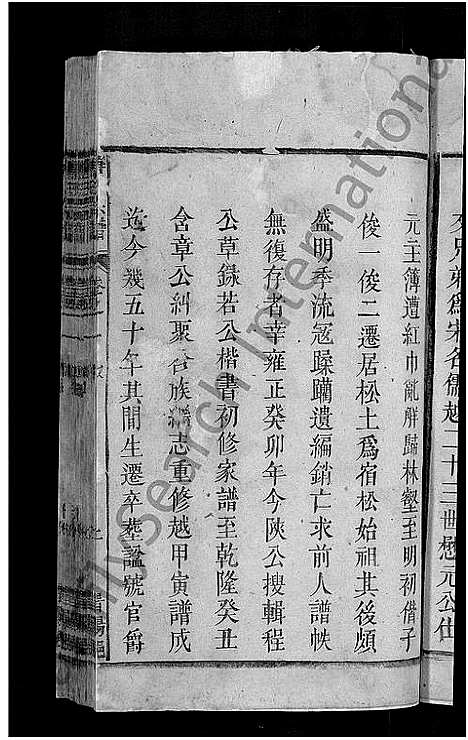 交兄弟爲宋名儒越二十三世懋元公仕
元主簿遭紅巾亂胖歸林壑至明初偕子
俊一俊二遷居松土爲宿松始祖其後頗
盛明季流寇蹂躪遺編銷亡求前人譜帙
無復存者幸雍正癸卯年今陝公搜輯程
公草錄若公楷書初修家譜至乾隆癸丑
含章公糾聚合族編志重修越甲寅譜成
迄今幾五十年其間生遷卒葬諡號官爵
My Search International